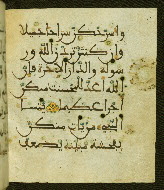 واسرحكن سراحا جميلا
وان كنتن تردن الله ور
سوله والدار الاخرة فان
الله اعد للمحسنت منكن
اجرا عظيما ينسا
النبى من يات منكن
بفحشة مبينة يضعف